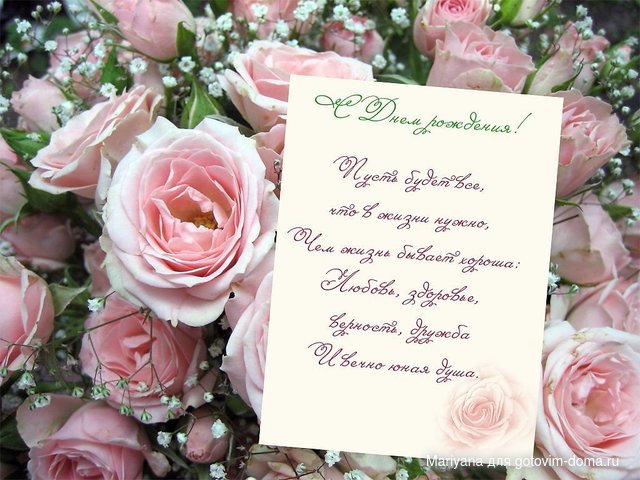 С Днем рождения!
Пусть будет все,
что в жизни нужно,
Чем жизнь бывает хороша:
Любовь, здоровье,
верность, дружба
И вечно юная душа.
Mariyana для gotovim-doma.ru